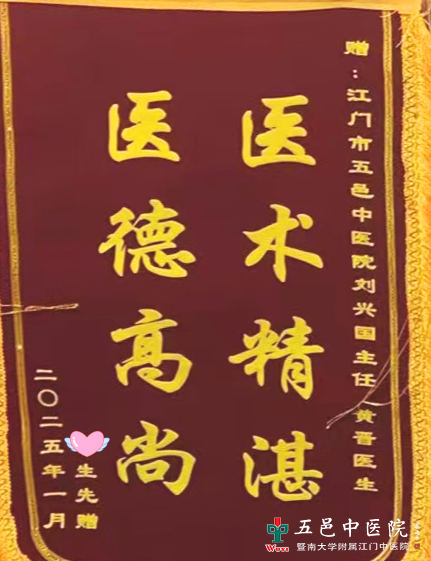 赠：江门市五邑中医院刘兴国主任 黄晋医生
医术精湛
医德高尚
生先赠
二〇二五年一月
五邑中医院
暨南大学附属江门中医院